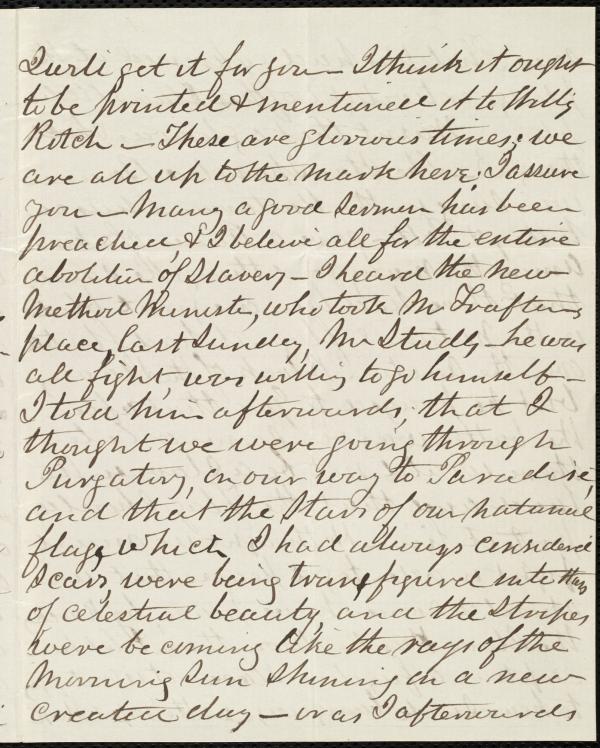 I will get it for you – I think it ought
to be printed & mentioned it to Willy
Rotch – These are glorious times; we
are all up to the mark here, I assure
you – Many a good sermon has been
preached, & I believe all for the entire
abolition of Slavery – I heard the new
Method Minister, who took Mr Trafton's
place, last Sunday, Mr Studly – he was
all fight, was willing to go himself –
I told him afterwards, that I
thought we were going through
Purgatory, on our way to Paradise,
and that the Stars of our national
flag, which I had always considered
Scars, were being transfigured into stars
of celestial beauty, and the Stripes
were becoming like the rays of the
Morning Sun shining on a new
created day – or as I afterwards